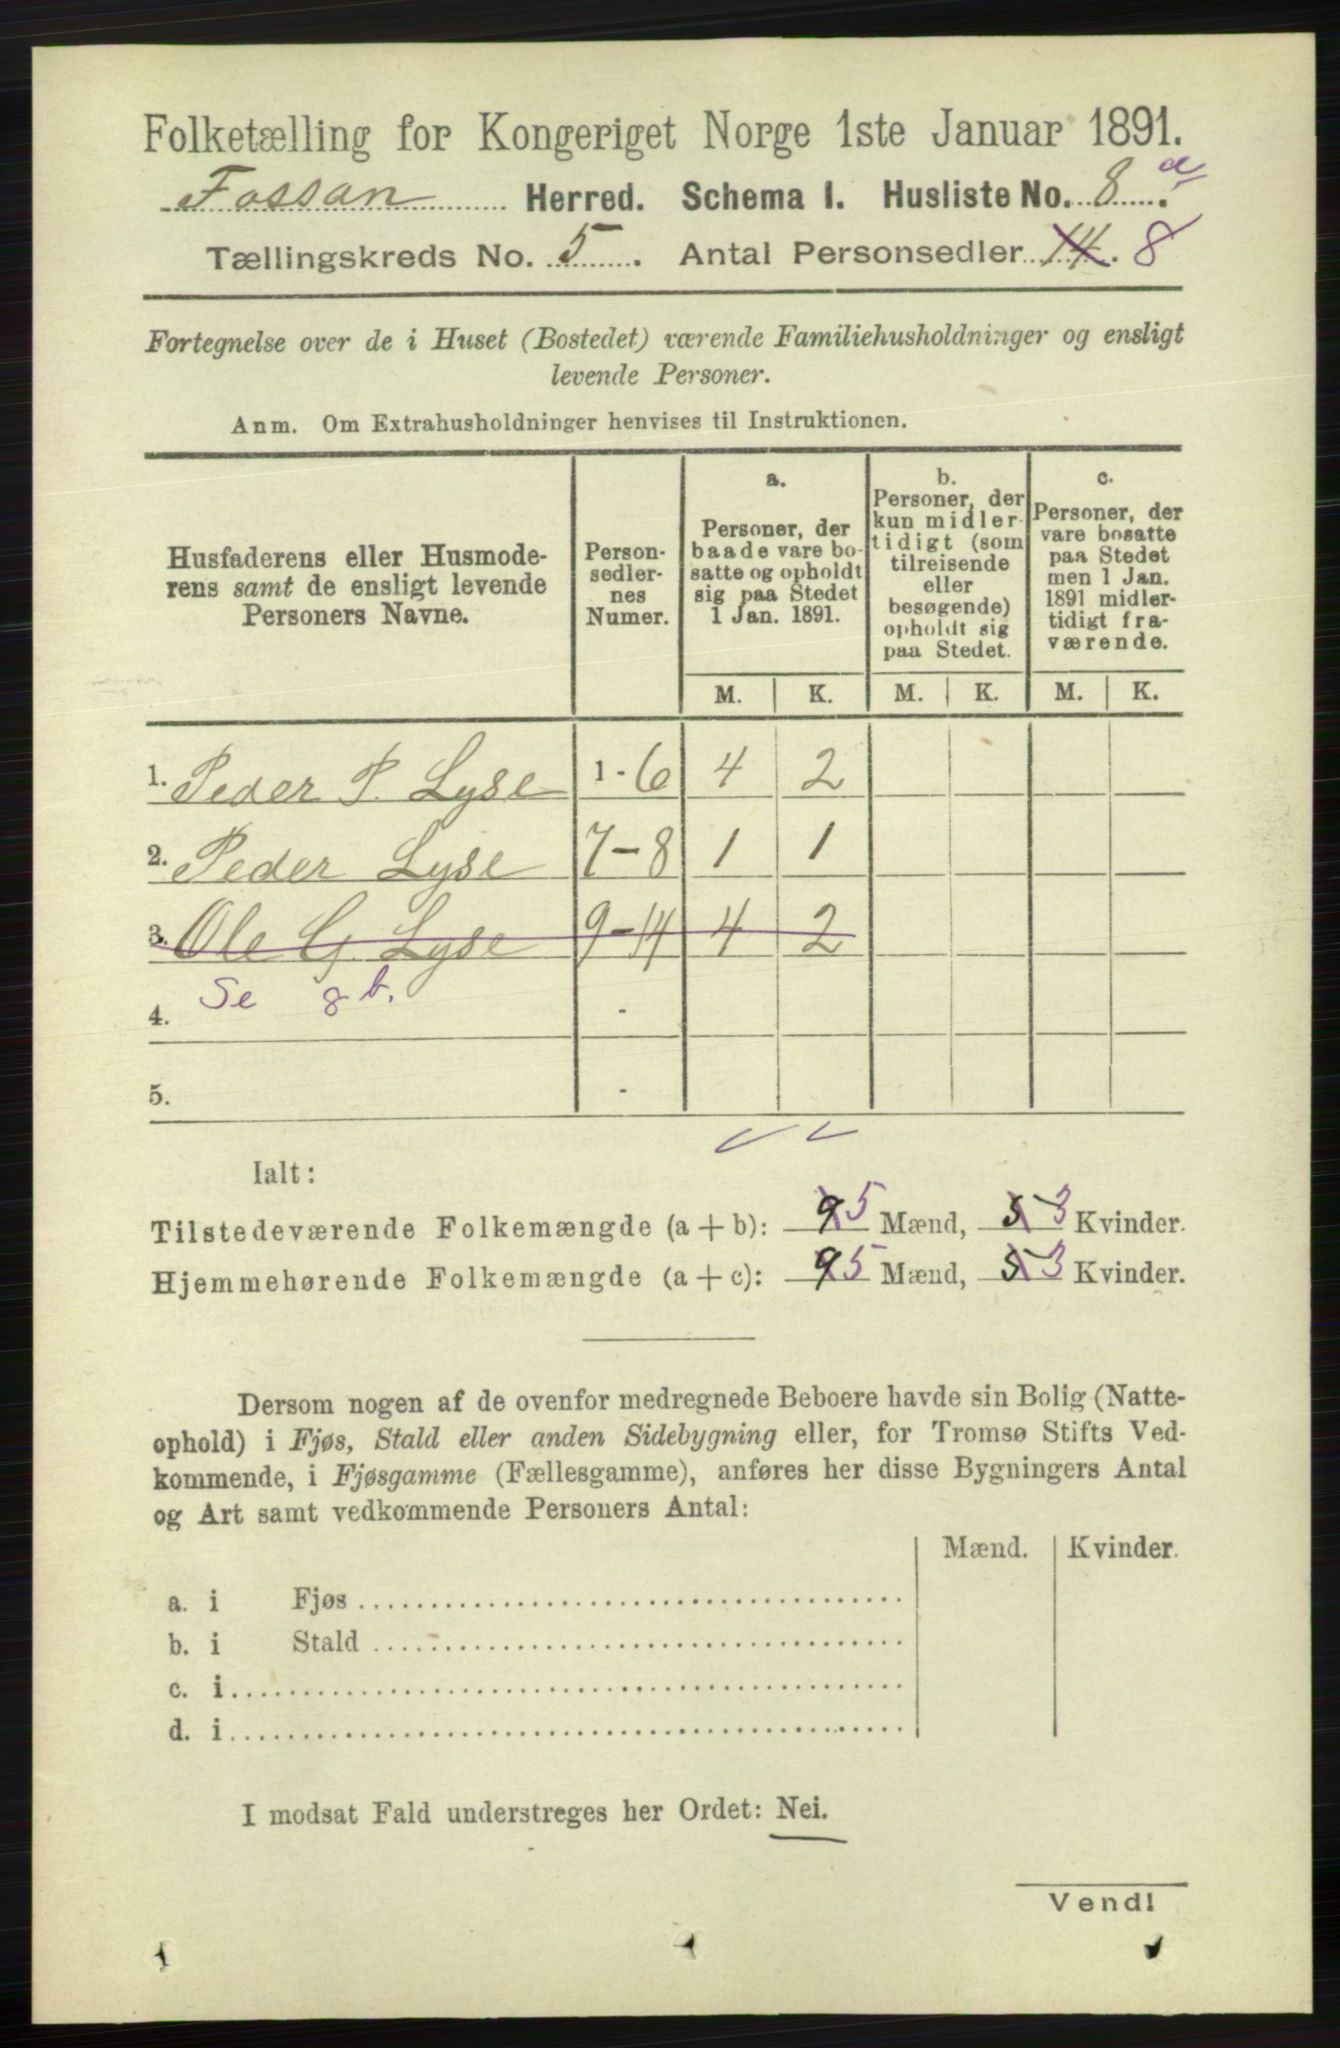 Folketælling for Kongeriget Norge 1ste Januar 1891.
Fossan Herred. Schema I. Husliste No. 8 a.
Tællingskreds No. 5. Antal Personsedler 14. 8
Fortegnelse over de i Huset (Bostedet) værende Familiehusholdninger og ensligt
levende Personer.
Anm. Om Extrahusholdninger henvises til Instruktionen.
Husfaderens eller Husmode-
rens samt de ensligt levende
Personers Navne.
Person-
sedler-
nes
Numer.
a.
Personer, der
baade vare bo-
satte og opholdt
sig paa Stedet
1 Jan. 1891.
b.
Personer, der
kun midler-
tidigt (som
tilreisende
eller
besøgende)
opholdt sig
paa Stedet.
c.
Personer, der
vare bosatte
paa Stedet
men 1 Jan.
1891 midler-
tidigt fra-
værende.
M. K. M. K. M. K.
1. Peder P. Lyse 1 - 6 4 2
2. Peder Lyse 7 - 8 1 1
3. Ole G. Lyse 9 - 14 4 2
Se 8 b.
4. -
5. -
Ialt:
Tilstedeværende Folkemængde (a + b): 9 5 Mænd, 5 3 Kvinder.
Hjemmehørende Folkemængde (a + c): 9 5 Mænd, 5 3 Kvinder.
Dersom nogen af de ovenfor medregnede Beboere havde sin Bolig (Natte-
ophold) i Fjøs, Stald eller anden Sidebygning eller, for Tromsø Stifts Ved-
kommende, i Fjøsgamme (Fællesgamme), anføres her disse Bygningers Antal
og Art samt vedkommende Personers Antal:
Mænd. Kvinder.
a. i Fjøs
b. i Stald
c. i
d. i
I modsat Fald understreges her Ordet: Nei.
Vend!